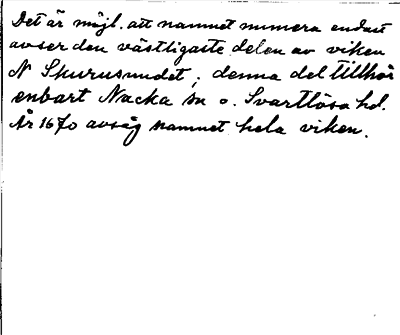 Det är möjl. att namnet numera endast
avser den västligaste delen av viken
N Skurusundet; denna del tillhör
enbart Nacka sn o. Svartlösa hd.
År 1670 avsåg namnet hela viken.